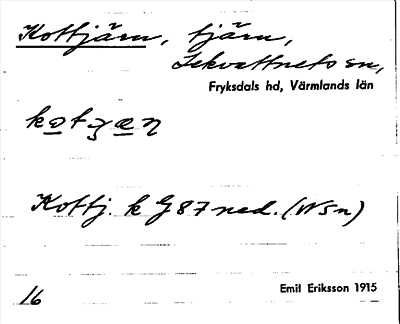 Kottjärn, tjärn,
Lekvattnets sn,
Fryksdals hd, Värmlands län
Kottj. k G 87 ned. (N Sn)
16
Emil Eriksson 1915